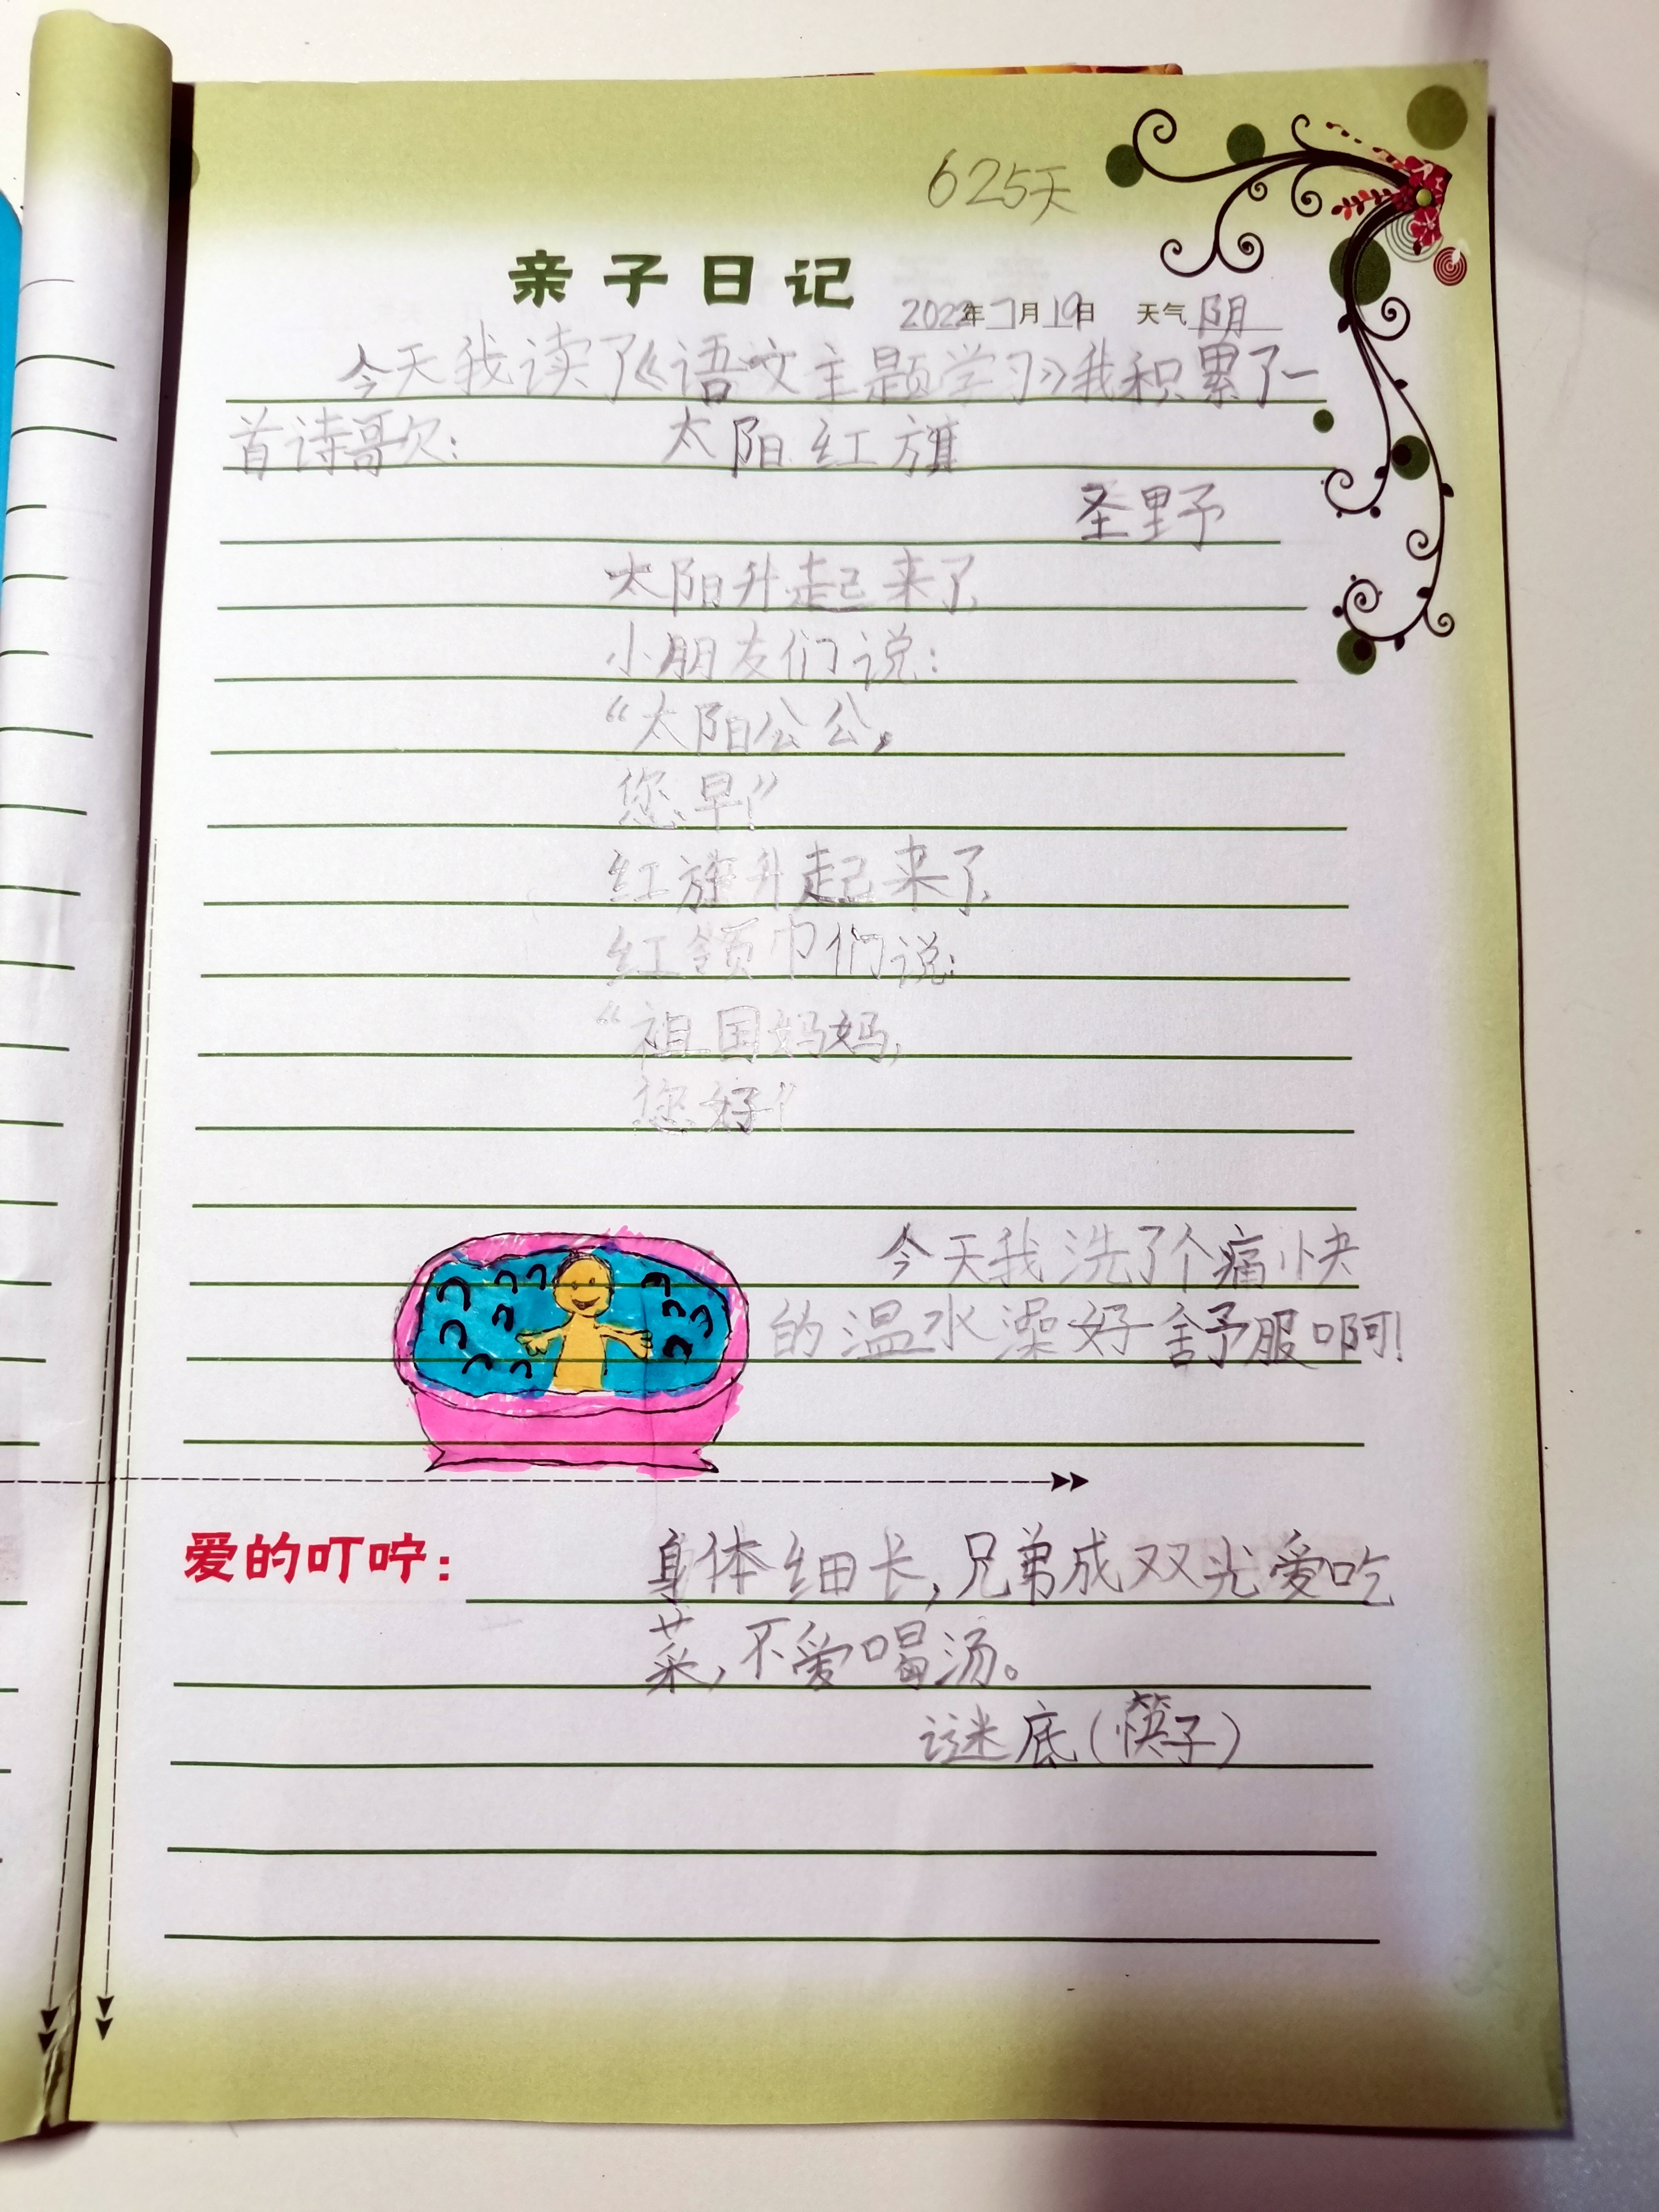 625天
亲子日记
2022年7月19日 天气阴
今天我读了《语文主题学习》我积累了一
首诗歌欠:   太阳红旗
圣野
太阳升起来了,
小朋友们说:
“太阳公公,
您早!”
红旗升起来了,
红领巾们说:
“祖国妈妈,
您好!”
今天我洗了个痛快
的温水澡好舒服啊!
爱的叮咛: 身体细长,兄弟成双光爱吃
菜,不爱喝汤。
谜底(筷子)